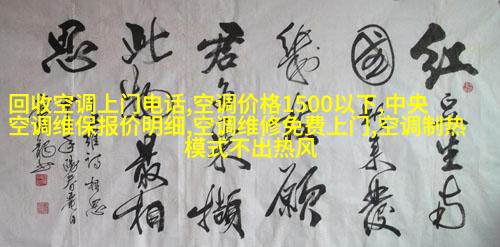 回收空调上门电话,空调价格1500以下,中央
空调维保报价明细,空调维修免费上门,空调制热
模式不出热风
红豆生南
國春来發
幾枝願
君多采撷
此物最相
思